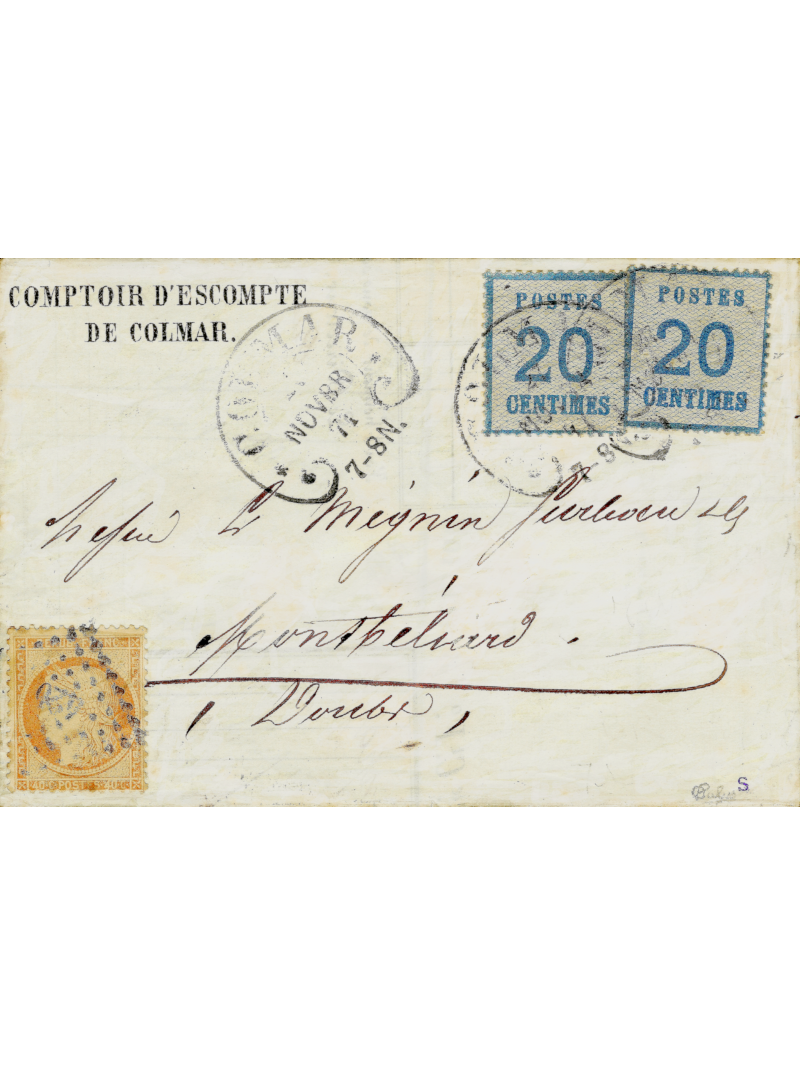 COMPTOIR D'ESCOMPTE
DE COLMAR.
COLMAR
NOVBR
71
7-8N.
POSTES
20
CENTIMES
POSTES
20
CENTIMES
L Mégnin
Montbéliard.
Doubs,
40·C·POSTES·40·C
S